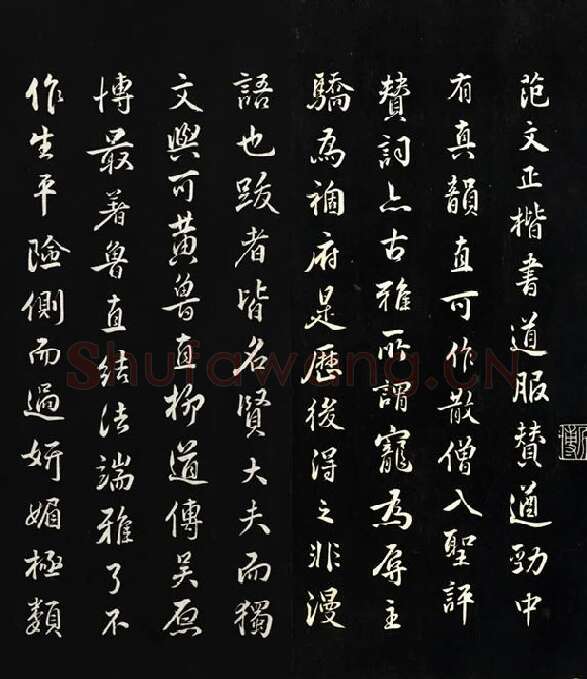 范文正楷書道服贊遒勁中
有真韻直可作散僧入聖評
贊詞亦古雅所謂寵為辱主
驕為禍府是歷後得之非漫
語也跋者皆名賢大夫而獨
文與可黃魯直柳道傳吴原
博最著魯直結法端雅了不
作生平險側而過妍媚極類
Shufawang.CN